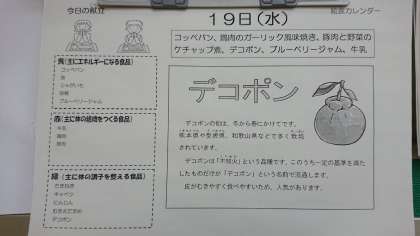 今日の献立
19日(水)
給食カレンダー
コッペパン、鶏肉のガーリック風味焼き、豚肉と野菜の
ケチャップ煮、デコポン、ブルーベリージャム、牛乳
黄(主にエネルギーになる食品)
コッペパン
油
じゃがいも
砂糖
ブルーベリージャム
赤(主に体の組織をつくる食品)
牛乳
鶏肉
豚肉
緑(主に体の調子を整える食品)
たまねぎ
キャベツ
にんじん
むきえだまめ
デコポン
デコポン
デコポンの旬は、冬から春にかけてです。
熊本県や愛媛県、和歌山県などで多く栽培
されています。
デコポンは「不知火」という品種です。このうち一定の基準を満た
したものだけが「デコポン」という名前で流通します。
皮がむきやすく食べやすいため、人気があります。